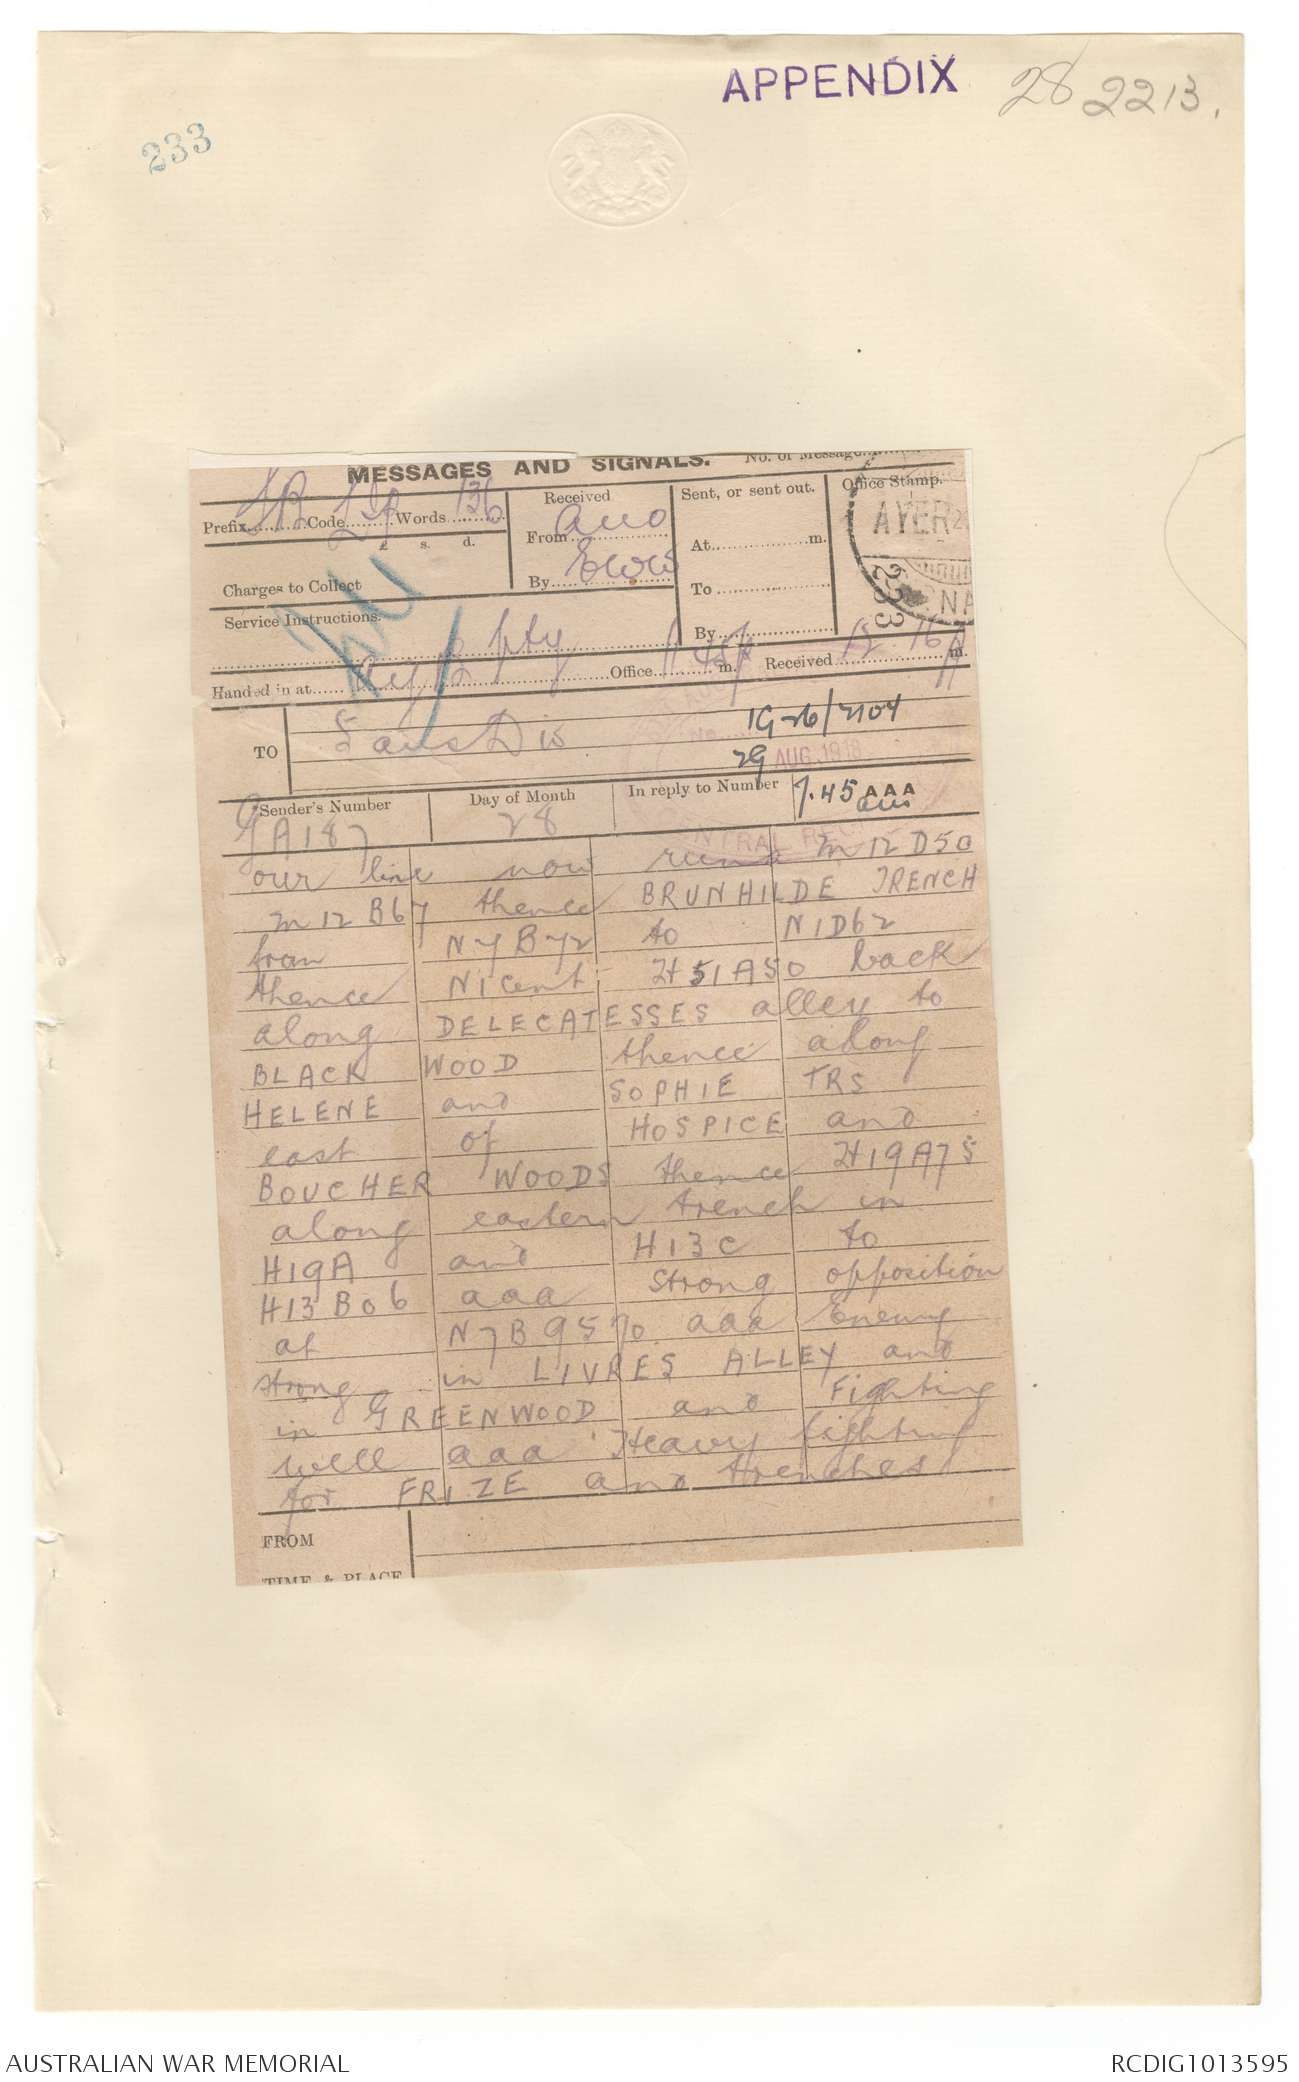 APPENDIX 28 2213.
333
MESSAGES AND SIGNALS. No. of Message
Prefix Code Words 136
Received
From
By
Sent, or sent out.
At m.
To
By
Office Stamp.
AYER
233
£ s. d.
Charges to Collect
Service Instructions.
Handed in at Office 11 45 p m. Received 12 16 A m.
TO Faus Dis
1G 26/2104
29 AUG 1918
Sender's Number Day of Month In reply to Number 7.45 AAA
GA187 28
our line now runs M12D50
M12B67 thence BRUNHILDE TRENCH
from N7B72 to N1D62
thence N1cent H51A50 back
along DELECATESSES alley to
BLACK WOOD thence along
HELENE and SOPHIE TRS
east of HOSPICE and
BOUCHER WOODS thence H19A75
along eastern trench in
H19A and H13C to
H13B06 aaa Strong opposition
at N7B9570 aaa Enemy
strong in LIVRES ALLEY and
in GREENWOOD and Fighting
well aaa Heavy fighting
for FRIZE and trenches
FROM
TIME & PLACE
AUSTRALIAN WAR MEMORIAL RCDIG1013595